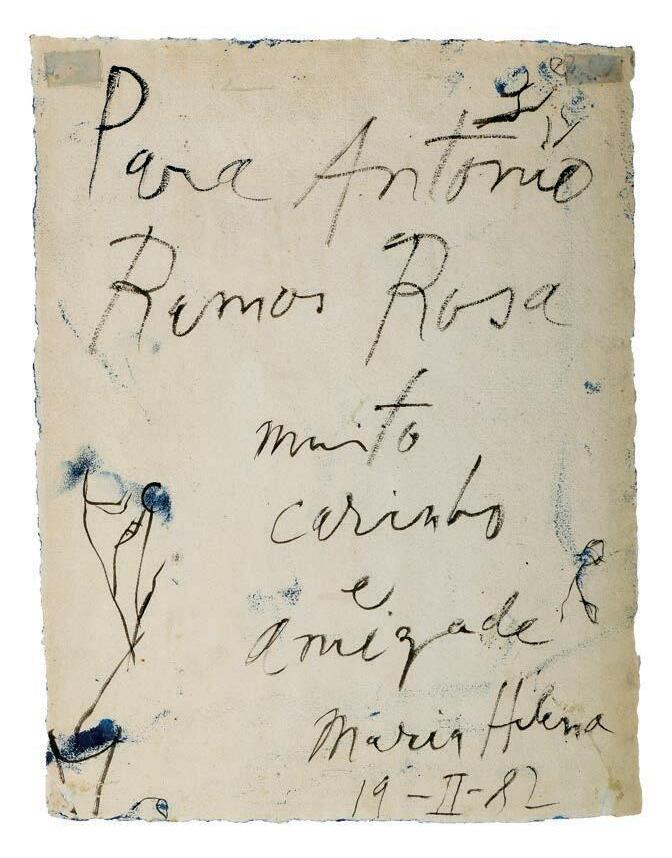 Para António
Ramos Rosa
muito
carinho
e
amizade
Maria Helena
19-II-82